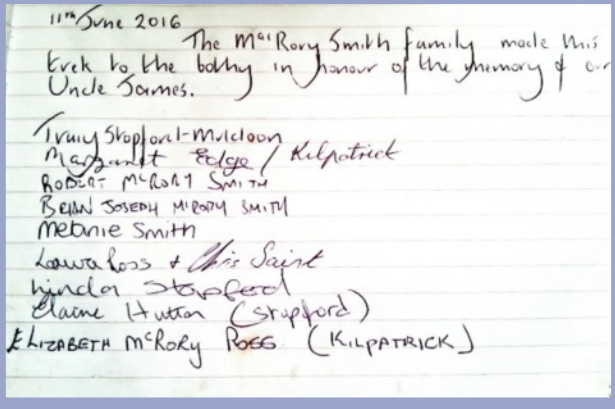 11th June 2016
The MacRory Smith family made this
trek to the bothy in honour of the memory of our
Uncle James.
Trudy Stopford-Muldoon
Margaret Edge / Kilpatrick
ROBERT McRORY SMITH
BRIAN JOSEPH McRORY SMITH
Melanie Smith
Laura Ross + Chris Saint
Linda Stopford
Elaine Hutton (Stopford)
ELIZABETH McRORY ROSS (KILPATRICK)